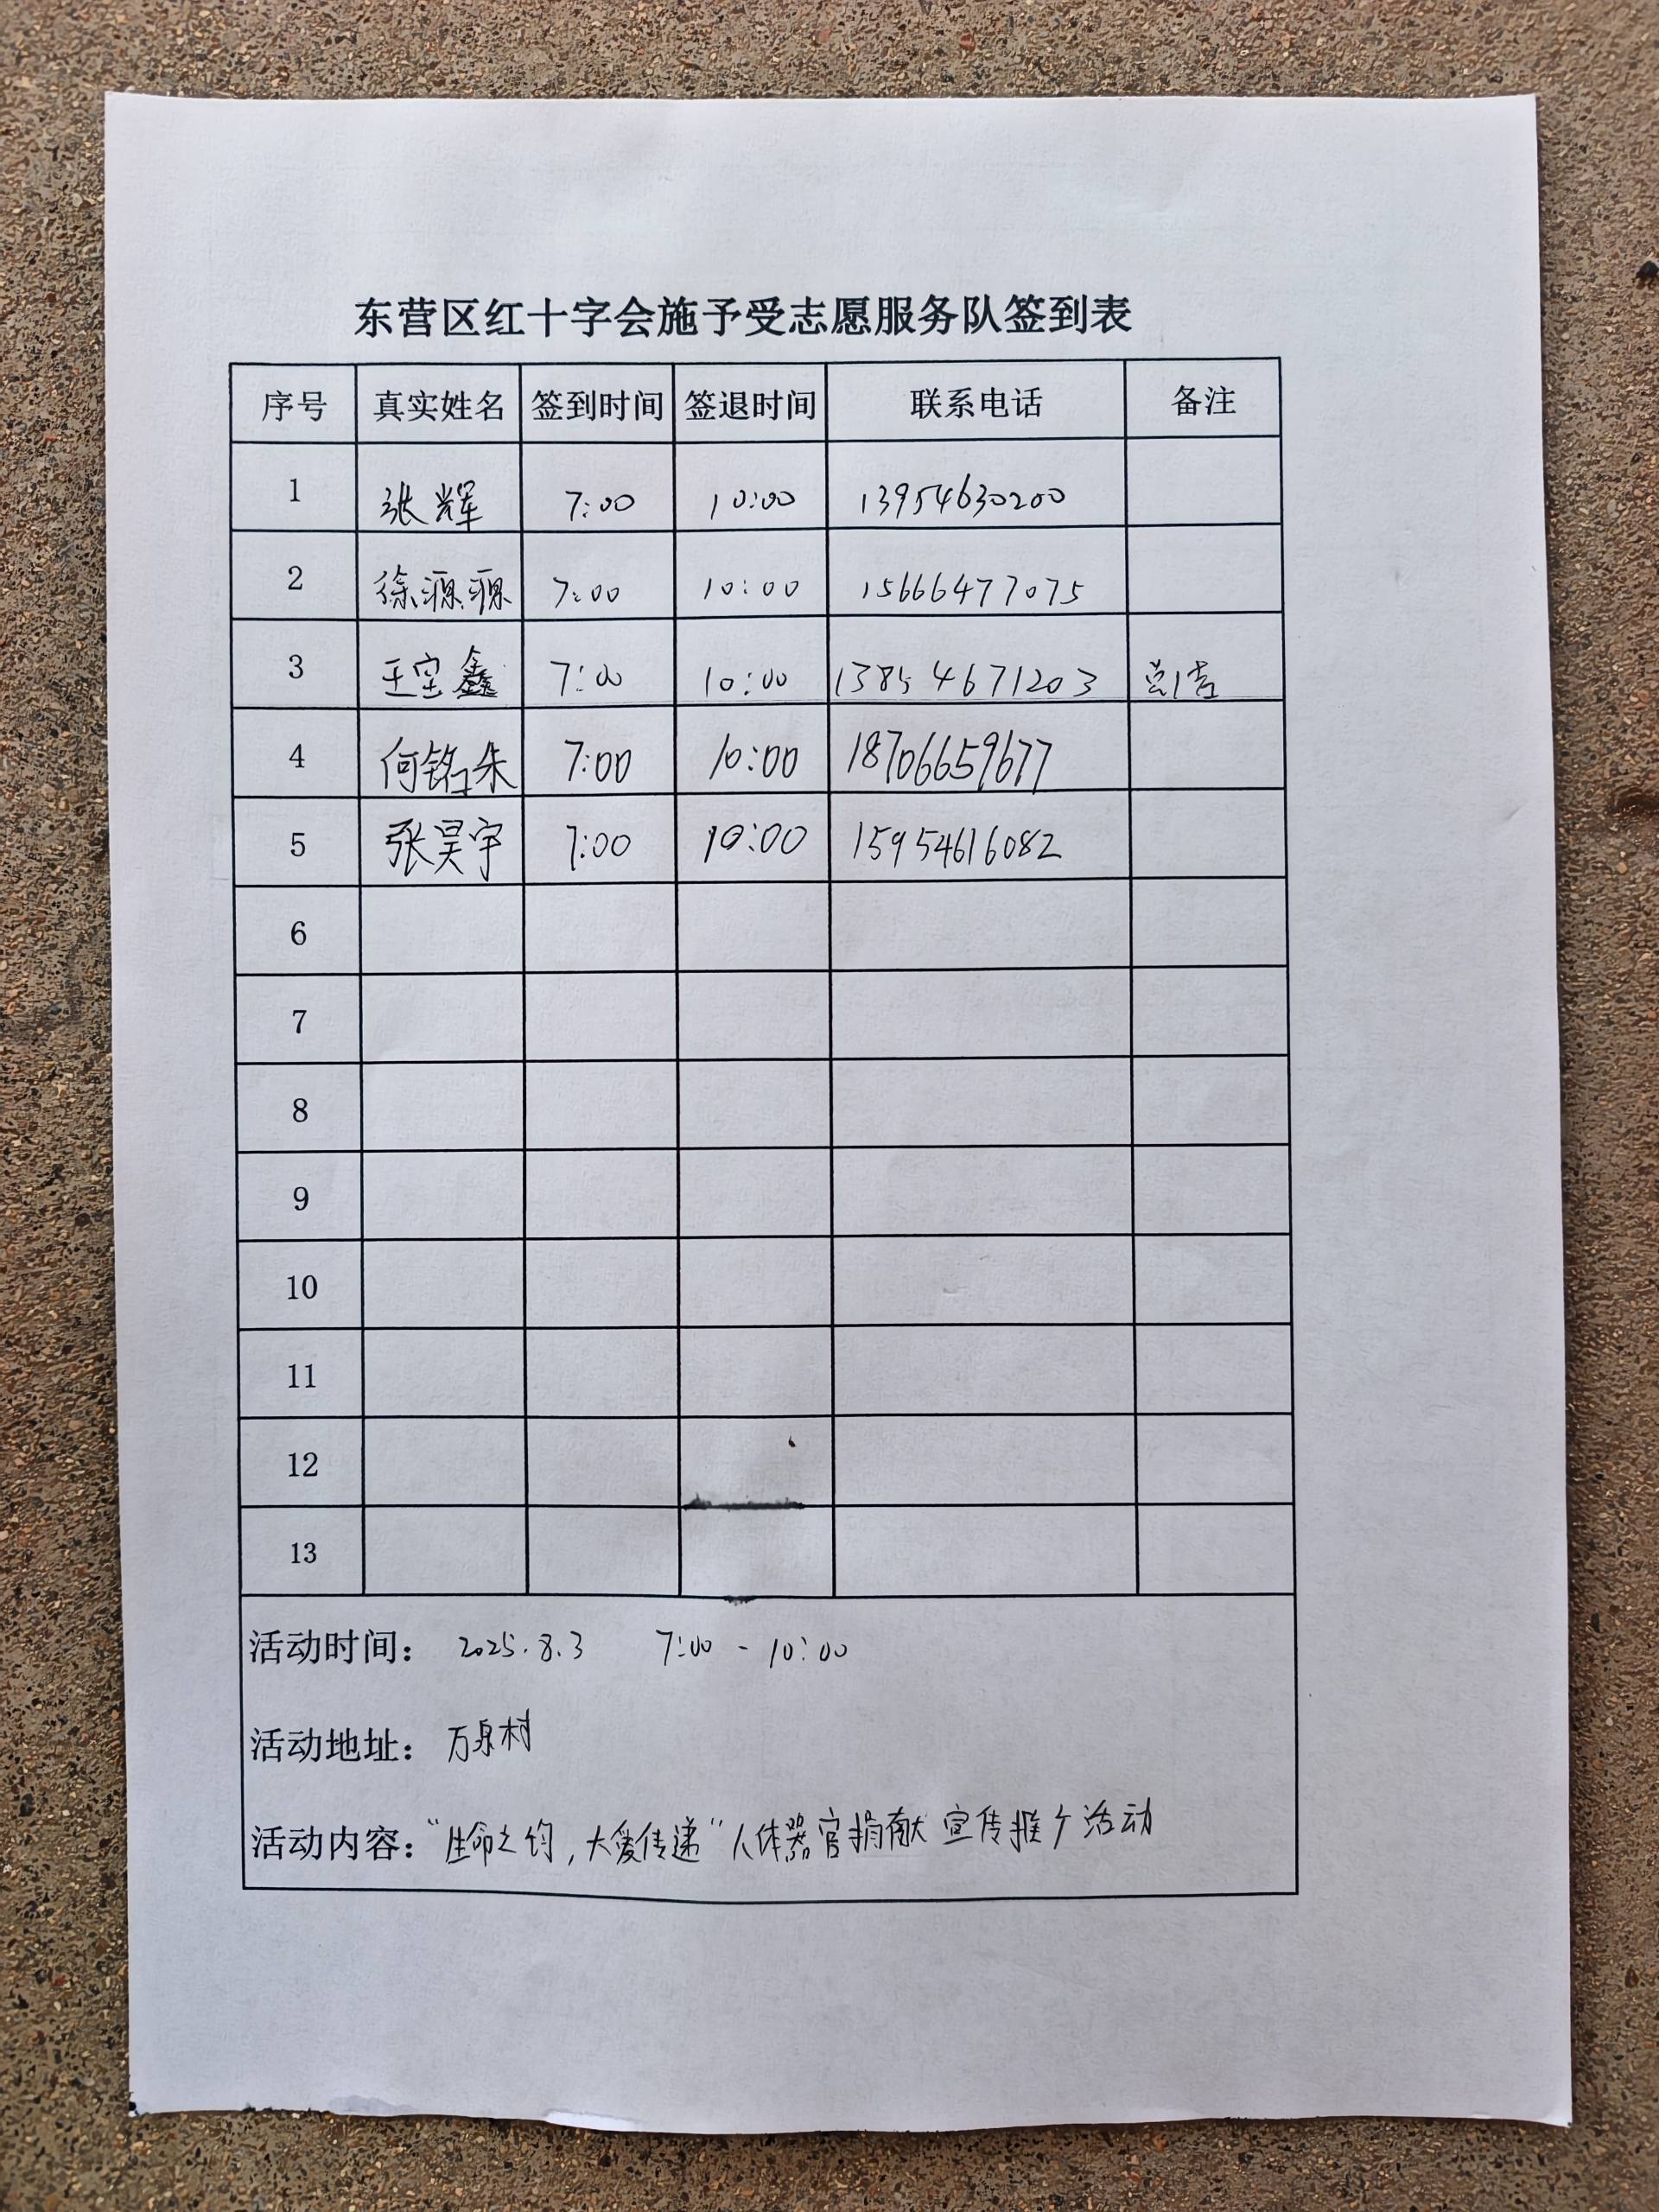 东营区红十字会施予受志愿服务队签到表
序号 真实姓名 签到时间 签退时间 联系电话 备注
1 张辉 7:00 10:00 13954630200
2 徐源源 7:00 10:00 15666477075
3 王宝鑫 7:00 10:00 13854671203
4 何铭朱 7:00 10:00 18706659677
5 张昊宇 7:00 10:00 15954616082
6
7
8
9
10
11
12
13
活动时间: 2025.8.3 7:00-10:00
活动地址: 万泉村
活动内容:“生命之约,大爱传递”人体器官捐献宣传推广活动